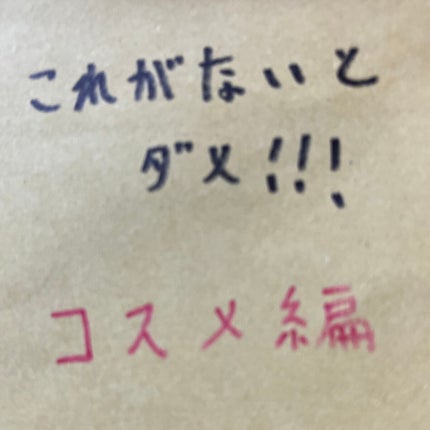 これがないと
ダメ!!!
コスメ編